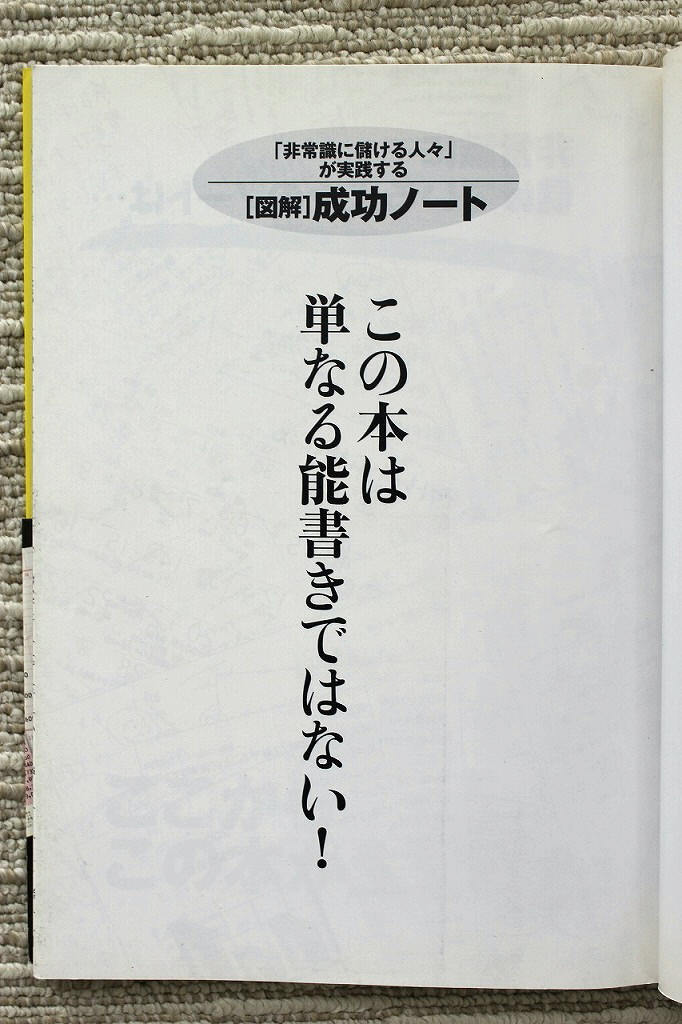 「非常識に儲ける人々」
が実践する
[図解]成功ノート
この本は
単なる能書きではない！